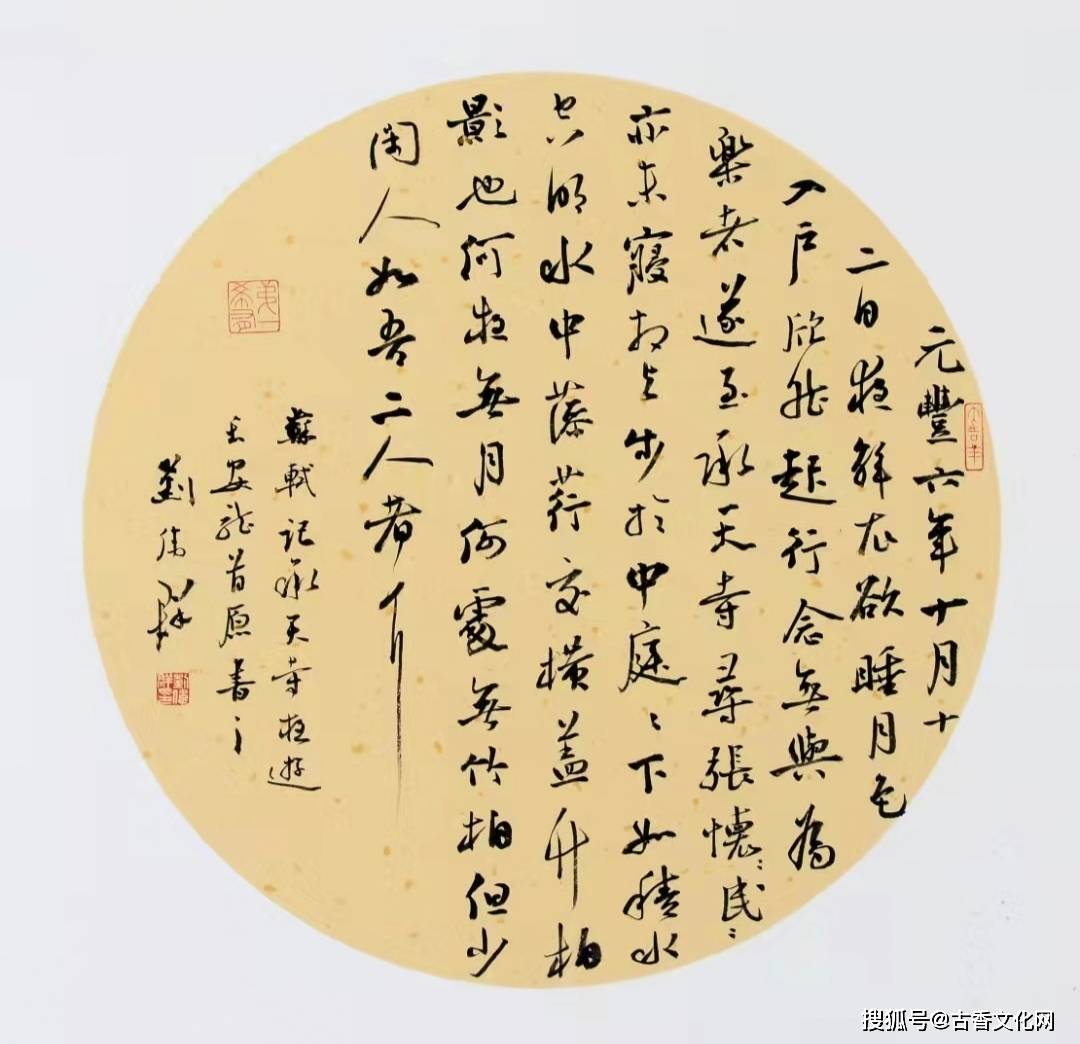 元豐六年十月十
二日夜解衣欲睡月色
入戶欣然起行念無與為
樂者遂至承天寺尋張懷〻民〻
亦未寢相與步於中庭〻下如積水
空明水中藻荇交橫蓋竹柏
影也何夜無月何處無竹柏但少
閑人如吾二人者耳
蘇軾記承天寺夜遊
安龍首原書之
劉偉
大吉羊
搜狐号@古香文化网